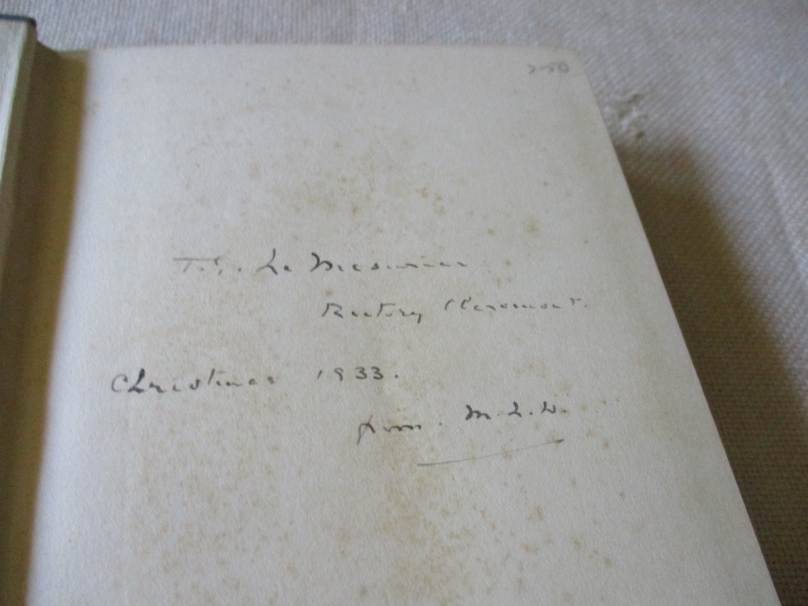 2-50
T. G. Le Mesurier
Rectory Claremont.
Christmas 1933.
from. M. L. W.